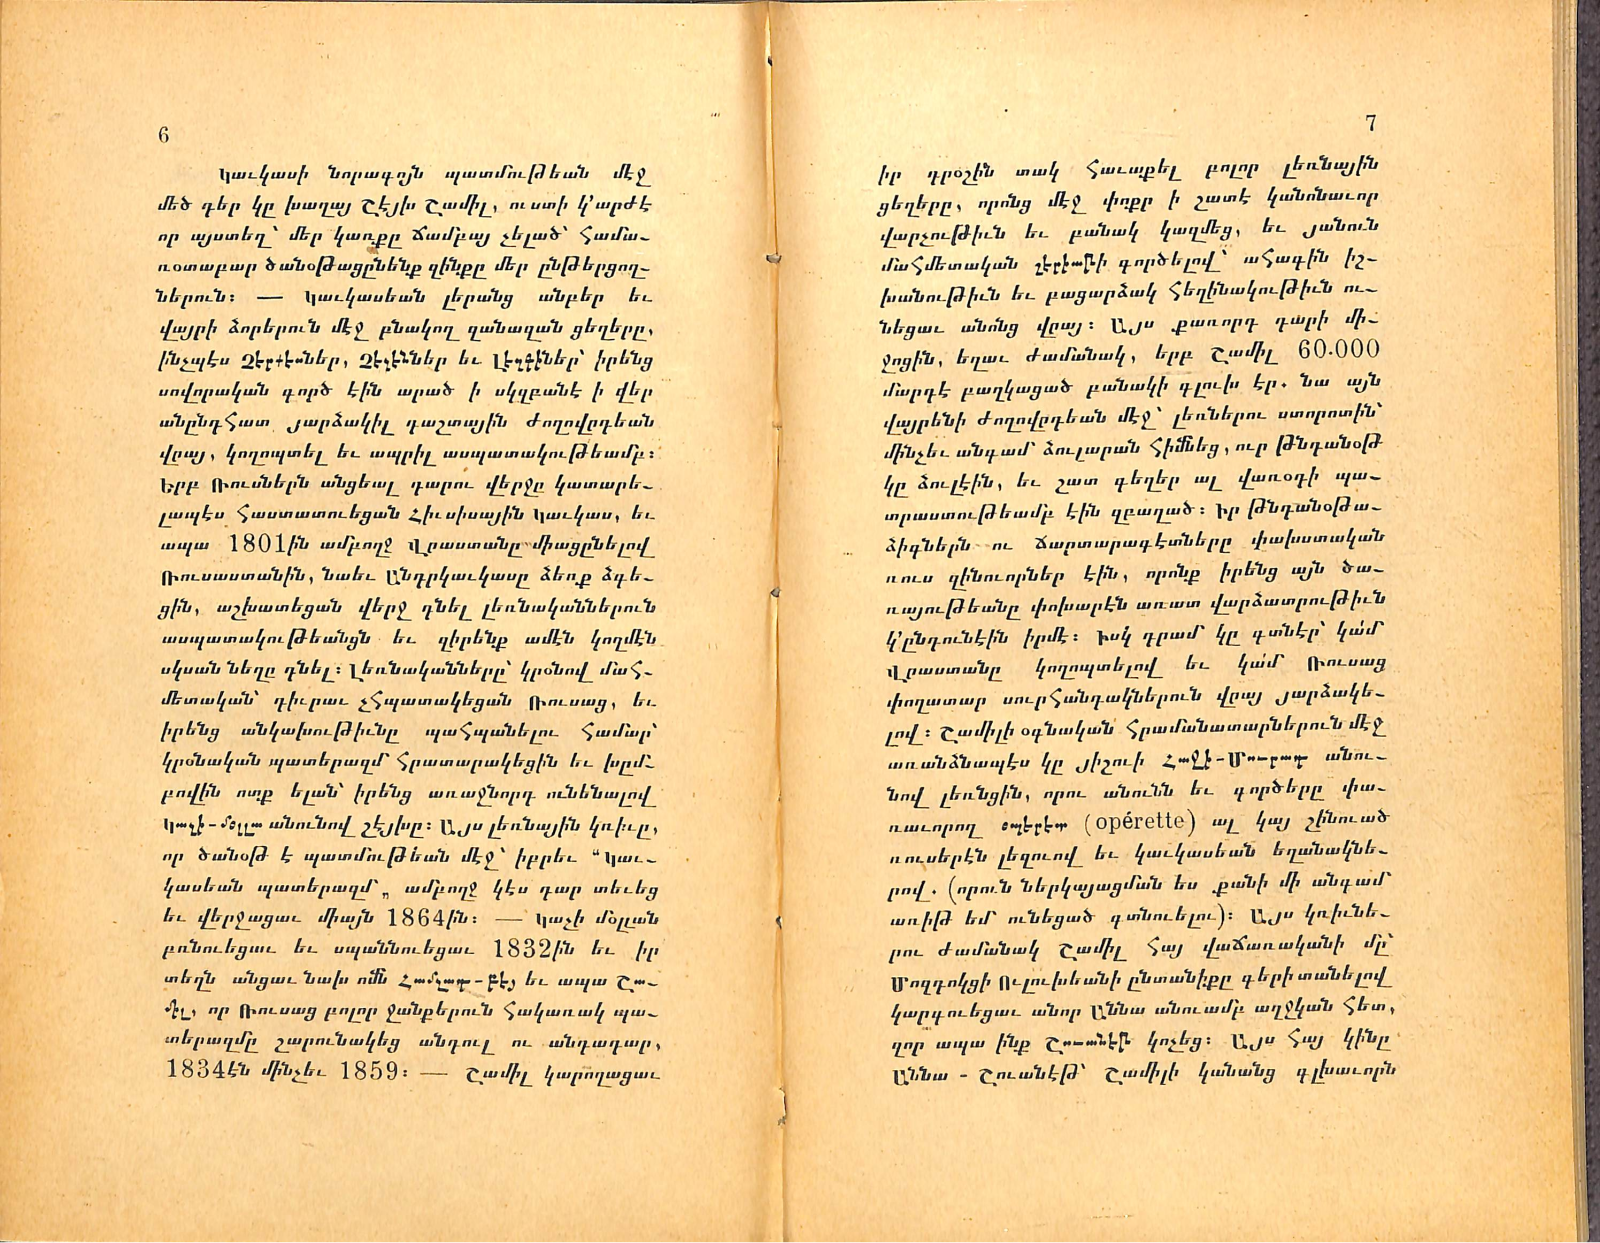 6
Կաւկասի նորագոյն պատմութեան մէջ
մեծ դեր կը խաղայ Շէյխ Շամիլ, ուստի կ՚արժէ
որ այստեղ՝ մեր կառքը ճամբայ չելած՝ համա-
ռօտաբար ծանօթացընենք զինքը մեր ընթերցող-
ներուն։ — Կաւկասեան լերանց անբեր եւ
վայրի ձորերուն մէջ բնակող զանազան ցեղերը,
ինչպէս Չէրքէսներ, Չէչէններ եւ Լէզգիներ՝ իրենց
սովորական գործ էին արած ի սկզբանէ ի վեր
անընդհատ յարձակիլ դաշտային ժողովրդեան
վրայ, կողոպտել եւ ապրիլ ասպատակութեամբ։
Երբ Ռուսներն անցեալ դարու վերջը կատարե-
լապէս հաստատուեցան Հիւսիսային Կաւկաս, եւ
ապա 1801ին ամբողջ Վրաստանը միացընելով
Ռուսաստանին, նաեւ Անդրկաւկասը ձեռք ձգե-
ցին, աշխատեցան վերջ դնել լեռնականներուն
ասպատակութեանցն եւ զիրենք ամէն կողմէն
սկսան նեղը դնել։ Լեռնականները՝ կրօնով մահ-
մետական՝ դիւրաւ չհպատակեցան Ռուսաց, եւ
իրենց անկախութիւնը պահպանելու համար՝
կրօնական պատերազմ հրատարակեցին եւ խըմ-
բովին ոտք ելան՝ իրենց առաջնորդ ունենալով
Կաչի-մօլլա անունով շէյխը։ Այս լեռնային կռիւը,
որ ծանօթ է պատմութեան մէջ՝ իբրեւ “Կաւ-
կասեան պատերազմ„ ամբողջ կէս դար տեւեց
եւ վերջացաւ միայն 1864ին։ — Կաչի մօլլան
բռնուեցաւ եւ սպաննուեցաւ 1832ին եւ իր
տեղն անցաւ նախ ոմն Համզատ-բէյ եւ ապա Շա-
միլ, որ Ռուսաց բոլոր ջանքերուն հակառակ պա-
տերազմը շարունակեց անդուլ ու անդադար,
1834էն մինչեւ 1859։ — Շամիլ կարողացաւ
7
իր դրօշին տակ հաւաքել բոլոր լեռնային
ցեղերը, որոնց մէջ փոքր ի շատէ կանոնաւոր
վարչութիւն եւ բանակ կազմեց, եւ յանուն
մահմետական շէրիաթի գործելով՝ ահագին իշ-
խանութիւն եւ բացարձակ հեղինակութիւն ու-
նեցաւ անոնց վրայ։ Այս քառորդ դարի մի-
ջոցին, եղաւ ժամանակ, երբ Շամիլ 60.000
մարդէ բաղկացած բանակի գլուխ էր. նա այն
վայրենի ժողովրդեան մէջ՝ լեռներու ստորոտին՝
մինչեւ անգամ ձուլարան հիմնեց, ուր թնդանօթ
կը ձուլէին, եւ շատ գեղեր ալ վառօդի պա-
տրաստութեամբ էին զբաղած։ Իր թնդանօթա-
ձիգներն ու ճարտարագէտները փախստական
ռուս զինուորներ էին, որոնք իրենց այն ծա-
ռայութեանը փոխարէն առատ վարձատրութիւն
կ՚ընդունէին իրմէ։ Իսկ դրամ կը գտնէր՝ կամ
Վրաստանը կողոպտելով եւ կամ Ռուսաց
փողատար սուրհանդակներուն վրայ յարձակե-
լով։ Շամիլի օգնական հրամանատարներուն մէջ
առանձնապէս կը յիշուի Հաջի-Մուրատ անու-
նով լեռնցին, որու անունն եւ գործերը փա-
ռաւորող օպէրէտ (opérette) ալ կայ շինուած
ռուսերէն լեզուով եւ կաւկասեան եղանակնե-
րով. (որուն ներկայացման ես քանի մի անգամ
առիթ եմ ունեցած գտնուելու)։ Այս կռիւնե-
րու ժամանակ Շամիլ հայ վաճառականի մը՝
Մոզդոկցի Ուլուխեանի ընտանիքը գերի տանելով
կարգուեցաւ անոր Աննա անուամբ աղջկան հետ,
զոր ապա ինք Շուանէթ կոչեց։ Այս հայ կինը
Աննա - Շուանէթ՝ Շամիլի կանանց գլխաւորն